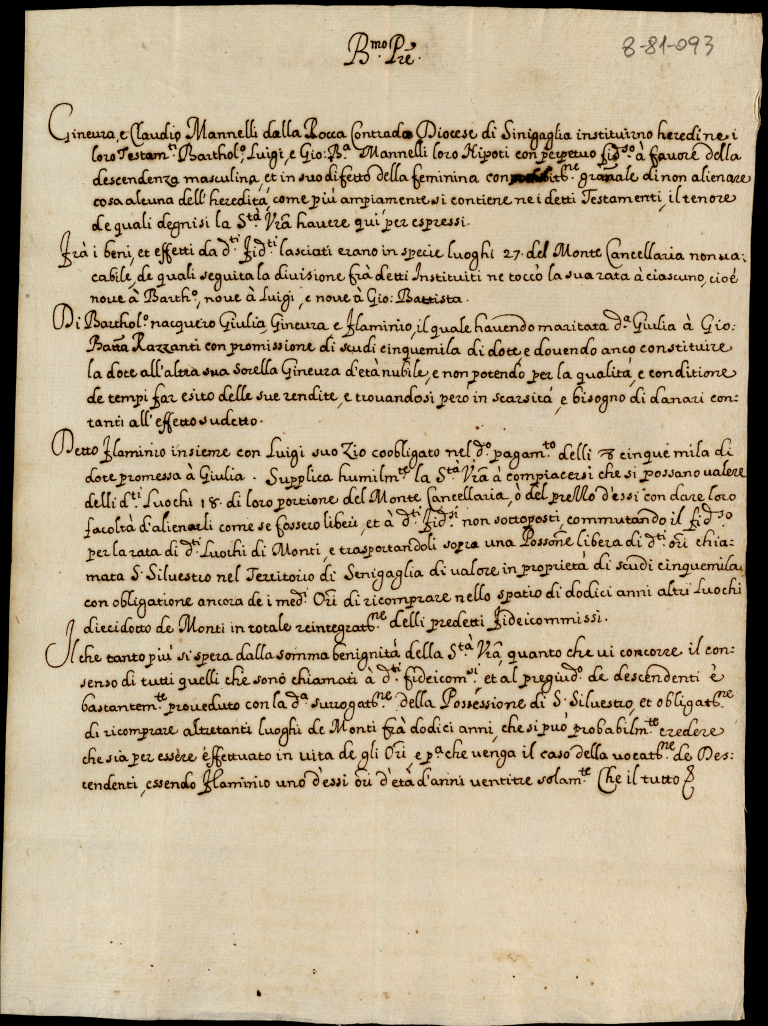 B.mo Pre.
8-81-093
Gineura, e Claudio Mannelli dalla Rocca Contrada Diocese di Sinigaglia instituirno heredi ne i
loro Testam.ti Barthol.o, Luigi, e Gio: B.a Mannelli loro Nipoti con perpetuo fid.so à fauore della
descendenza masculina, et in suo difetto della feminina con prohibit.ne grauale di non alienare
cosa alcuna dell'heredità, come più ampiamente si contiene ne i detti Testamenti, il tenore
de quali degnisi la S.tà Vra hauere qui per espressi.
Frà i beni, et effetti da d.ti fid.ti lasciati erano in specie luoghi 27. del Monte Cancellaria non ua-
cabile, de quali seguita la diuisione frà detti Instituiti ne toccò la sua rata à ciascuno, cioè
noue à Barth.o, noue à Luigi, e noue à Gio: Battista.
Di Barthol.o nacquero Giulia, Gineura e Flaminio, il quale hauendo maritata d.a Giulia à Gio:
Batta Razzanti con promissione di scudi cinquemila di dote, e douendo anco constituire
la dote all'altra sua sorella Gineura d'età nubile, e non potendo per la qualità, e conditione
de tempi far esito delle sue rendite, e trouandosi però in scarsità, e bisogno di danari con-
tanti all'effetto sudetto.
Detto Flaminio insieme con Luigi suo Zio coobligato nel d.o pagam.to delli cinque mila di
dote promessa à Giulia. Supplica humilm.te la S.tà Vra à compiacersi che si possano ualere
delli d.ti Luochi 18. di loro portione del Monte Cancellaria, ò del prezzo d'essi con dare loro
facoltà d'alienarli come se fossero liberi, et à d.ti fid.si non sottoposti, commutando il fid.so
per la rata di d.ti Luochi di Monti, e trasportandoli sopra una Possone libera di d.ti ori chia-
mata S. Siluestro nel Territorio di Senigaglia di ualore in proprietà di scudi cinquemila,
con obligatione ancora de i med.i Ori di ricomprare nello spatio di dodici anni altri Luochi
diecidotto de Monti in totale reintegrat.ne delli predetti fideicommissi.
Il che tanto più si spera dalla somma benignità della S.tà Vra, quanto che ui concorre il con-
senso di tutti quelli che sono chiamati à d.ti fideicom.si, et al pregiud.o de descendenti è
bastantem.te proueduto con la d.a surrogat.ne della Possessione di S. Siluestro, et obligat.ne
di ricomprare altretanti luoghi de Monti frà dodici anni, che si può probabilm.te credere
che sia per essere effettuato in uita de gli Ori, e p.a che uenga il caso della uocat.ne de Des-
cendenti, essendo Flaminio uno d'essi ori d'età d'anni uentitre solam.te Che il tutto